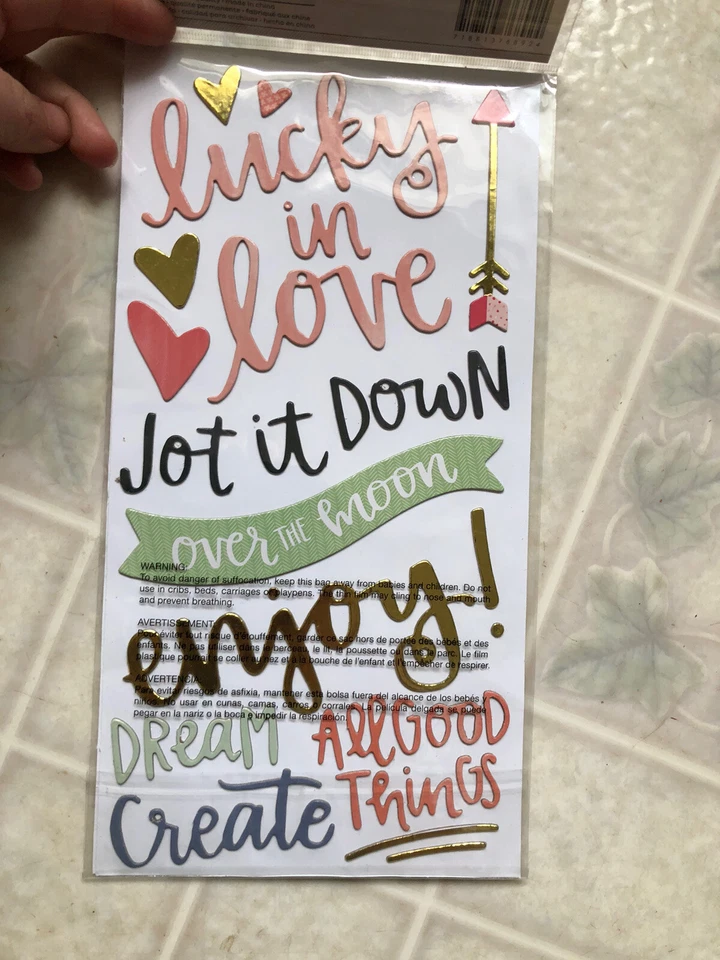 lucky
in
love
Jot it Down
over THE moon
WARNING:
To avoid danger of suffocation, keep this bag away from babies and children. Do not
use in cribs, beds, carriages or playpens. The thin film may cling to nose and mouth
and prevent breathing.
enjoy!
AVERTISSEMENT
Pour éviter tout risque d'étouffement, garder ce sac hors de portée des bébés et des
enfants. Ne pas utiliser dans le berceau, le lit, la poussette ou dans le parc. Le film
plastique pourrait se coller au nez et à la bouche de l'enfant et l'empêcher de respirer.
ADVERTENCIA
Para evitar riesgos de asfixia, mantener esta bolsa fuera del alcance de los bebés y
niños. No usar en cunas, camas, carros o corrales. La película delgada se puede
pegar en la nariz o la boca e impedir la respiración.
DReaM
All GOOD
Things
Create